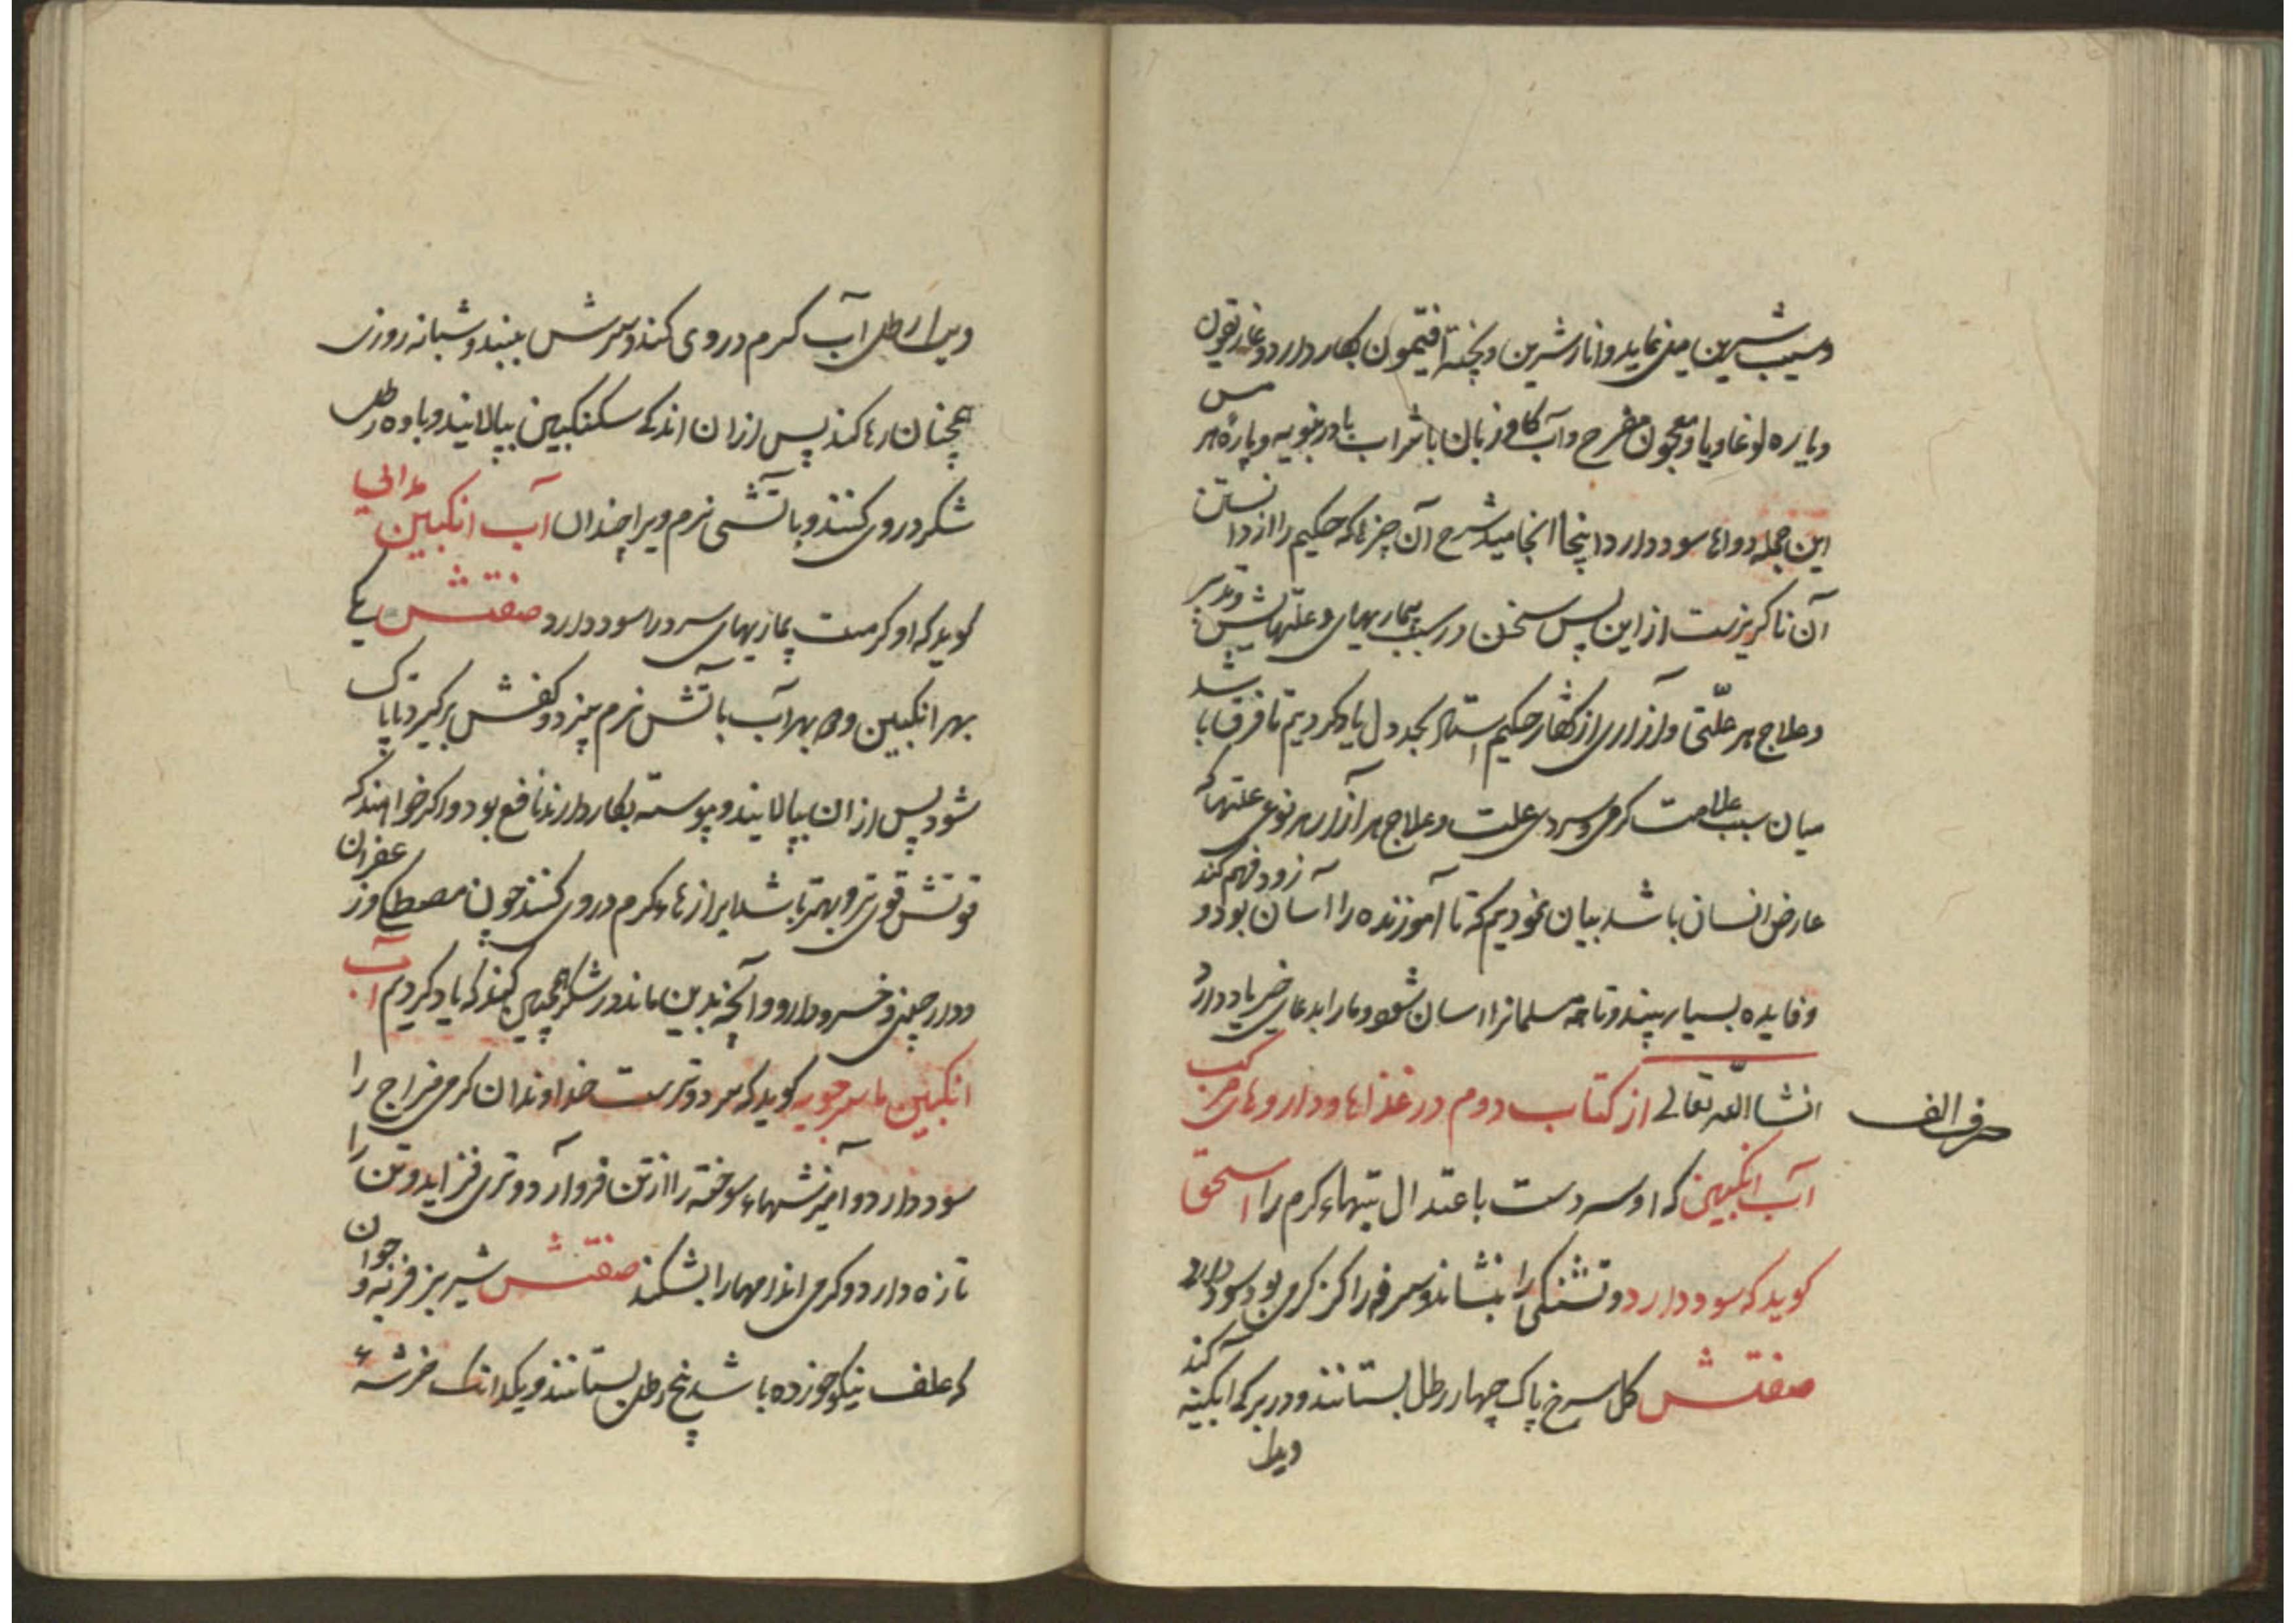 وسیب شیرین میل نماید وانار شیرین وپخته افتیمون بکار دارد وغاریقون
ویاره لوغادیا ومعجون مفرح وآب کاو زبان با شراب بادرنبویه وپاره هر
این جمله دواها سود دارد اینجا انجامید شرح آن چیزها که حکیم را از دانستن
آن ناکریزست از این پس سخن در سبب بیماریهای وعلتهاش وتدبیر
وعلاج هر علّتی وآزاری از کفتار حکیم استاد بجدول یاد کردیم تا فرق باشد
میان سبب علامت کرمی وسردی علت وعلاج هر آزار هر نوعی علتها که
عارض انسان باشد بیان نمودیم که تا آموزنده را آسان بود وزود فهم کند
وفایده بسیار بیند وتا مسلمانرا اسان شود ومارا بدعای خیر یاد دارد
حرف الف
انشا اللّه تعالی از کتاب دوم در غذاها وداروهای مرکب
آب انکبین که او سردست باعتدال تبهاء کرم را اسحق
کوید که سود دارد وتشنکی را بنشاند وسرفه را کز کرمی بود سود دارد
صفتش کل سرخ پاک چهار رطل بستانند ودر برکه آبکینه کنند
رطل آب کرم در وی کند وسرش ببندد وشبانه روزی
همچنان رها کند پس از ان اندکه سکنکبین بپالایند وباوه رطل
شکر در وی کنند وباتشی نرم ویرا چندان آب انکبین
کوید که او کرمست بیماریهای سرد را سود دارد صفتش یکی
بهر انکبین و بهر آب باتش نرم پیزد وکفش برکیرد تا پاک
شود پس از ان بپالایند وپیوسته بکار دارند نافع بود واکر خواهند که
قوتش قوی تر وبهتر باشد ابرازهاء کرم در وی کنند چون مصطکی وزعفران
ودار چینی وخسرودارو وآنچه بدین ماند ودر شکر همچنین کنند که یاد کردیم آب
انکبین ماسرجویه کوید که سرد وترست خداوندان کرمی مزاج را
سود دارد وآمیزشهاء سوخته را از تن فرو آرد وتری فزاید وتن را
تازه دارد وکرمی اندامهارا بشکند صفتش شیر بز فربه وجوان
که علف نیکو خورده باشد پنج رطل بستانند ویکدانک